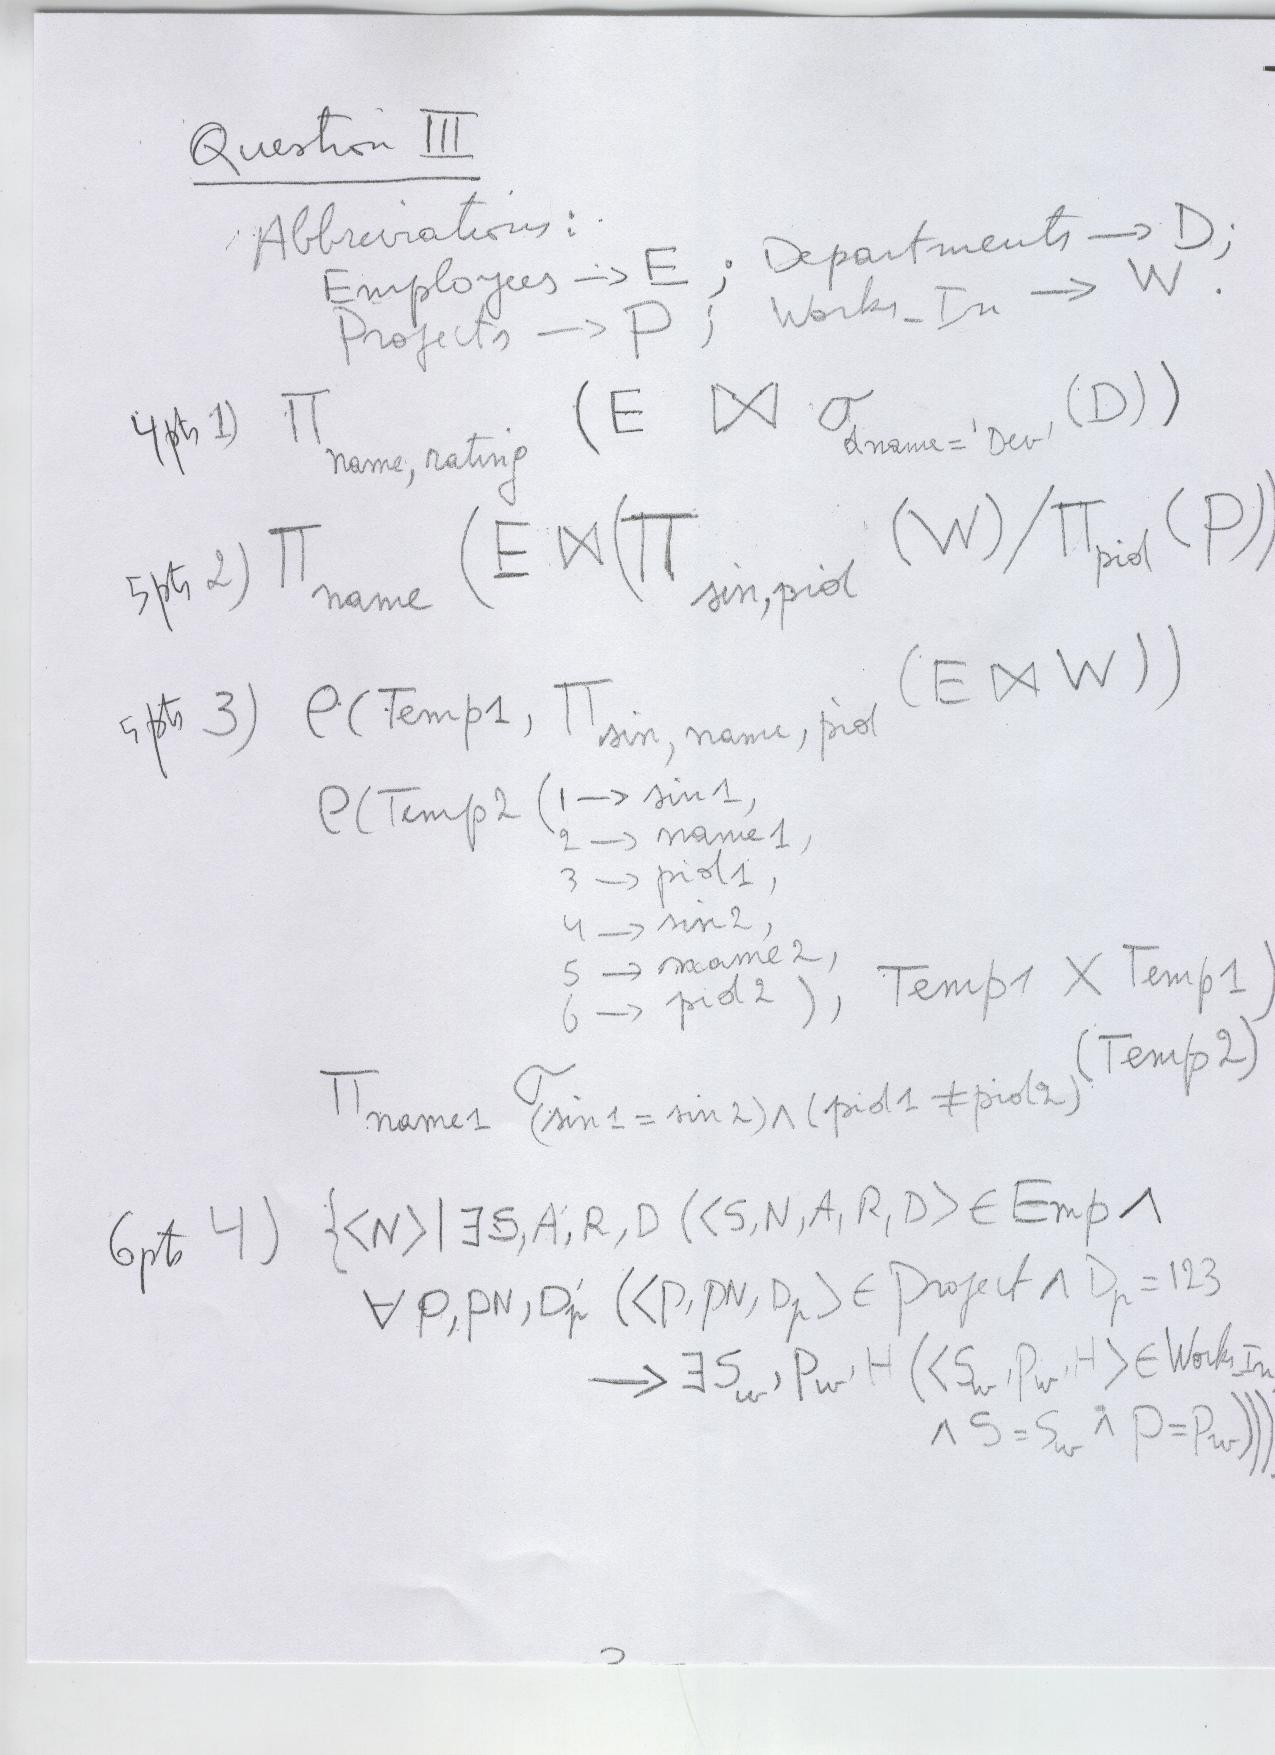 Question III
Abbreviations:
Employees → E ; Departments → D;
Projects → P ; Works_In → W.
4pts 1) π name, rating (E ⋈ σ dname='Dev' (D))
5pts 2) π name (E ⋈ (π sin,pid (W) / π pid (P))
5pts 3) ρ(Temp1, π sin, name, pid (E ⋈ W))
ρ(Temp2 (1 → sin1,
2 → name1,
3 → pid1,
4 → sin2,
5 → name2,
6 → pid2), Temp1 X Temp1)
π name1 σ (sin1 = sin2) ∧ (pid1 ≠ pid2) (Temp2)
6pts 4) {<N> | ∃S, A, R, D (<S, N, A, R, D> ∈ Emp ∧
∀ P, PN, Dp (<P, PN, Dp> ∈ Project ∧ Dp = 123
→ ∃ Sw, Pw, H (<Sw, Pw, H> ∈ Works_In
∧ S = Sw ∧ P = Pw)))